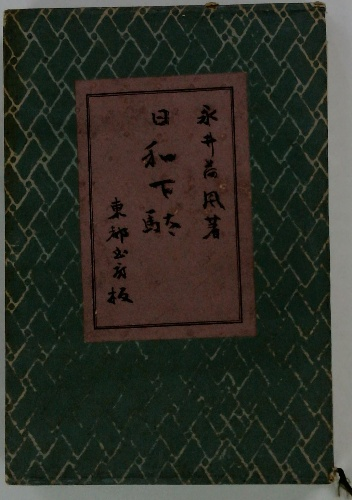 永井荷風著
日和下駄
東都書房板